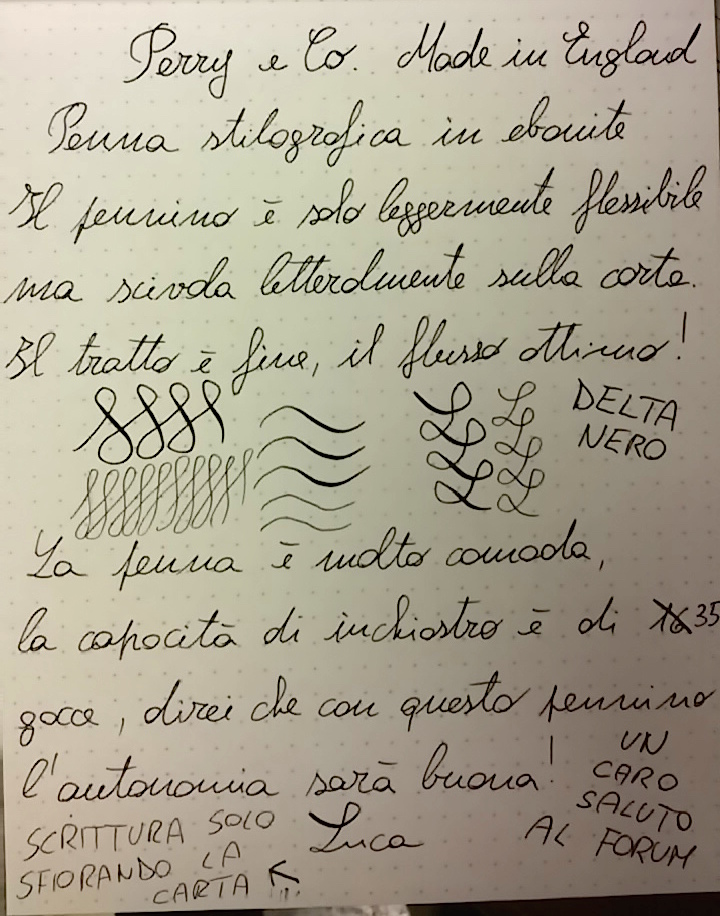 Perry e Co. Made in England
Penna stilografica in ebanite
Il pennino è solo leggermente flessibile
ma scivola letteralmente sulla carta.
Il tratto è fine, il flusso ottimo!
DELTA
NERO
La penna è molto comoda,
la capacità di inchiostro è di 35
gocce, direi che con questo pennino
l'autonomia sarà buona!
UN
CARO
SALUTO
AL FORUM
Luca
SCRITTURA SOLO
SFIORANDO LA
CARTA